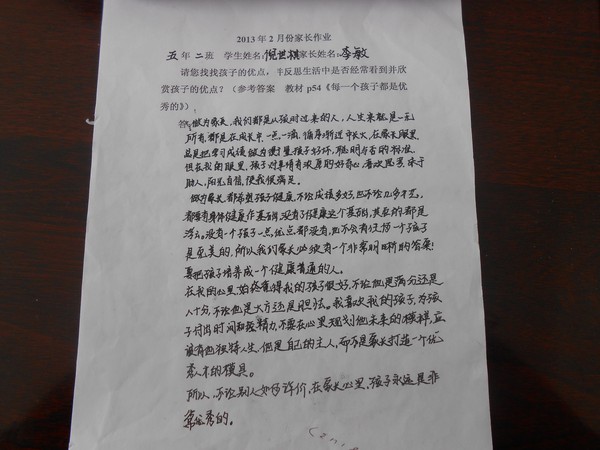 2013年2月份家长作业
五年二班 学生姓名:倪世棋家长姓名:李敏
请您找找孩子的优点,并反思生活中是否经常看到并欣
赏孩子的优点?(参考答案 教材p54《每一个孩子都是优
秀的》)
答:做为家长,我们都是从孩时过来的人,人生来就是一无
所有,都是在成长中,一点一滴,循序渐近中长大,在家长眼里
总是把学习成绩做为衡量孩子好坏,聪明与否的标准.
但在我的眼里,孩子对事情有浓厚的好奇心,喜欢思考,乐于
助人,阳光自信,使我很满足。
做为家长,都希望孩子健康,不论成绩多好,也不论几多才艺,
都要有身体健康作基础,没有了健康这个基础,其至的都是
浮云。没有一个孩子一点优点都没有,也不会有
是完美的,所以我们家长必须有一个非常明晰的答案:
要把孩子培养成一个健康普通的人。
在我的心里,始终觉得我的孩子很好,不论他是满分还是
八十分,不论他是大方还是胆怯。我喜欢我的孩子,为孩
子付出时间和精力,不要在心里规划他未来的模样,应
该有他独特人生,他是自己的主人,而不是家长打造一个优
秀人才的模具。
所以,不论别人如何评价,在家长心里,孩子永远是非
常优秀的。